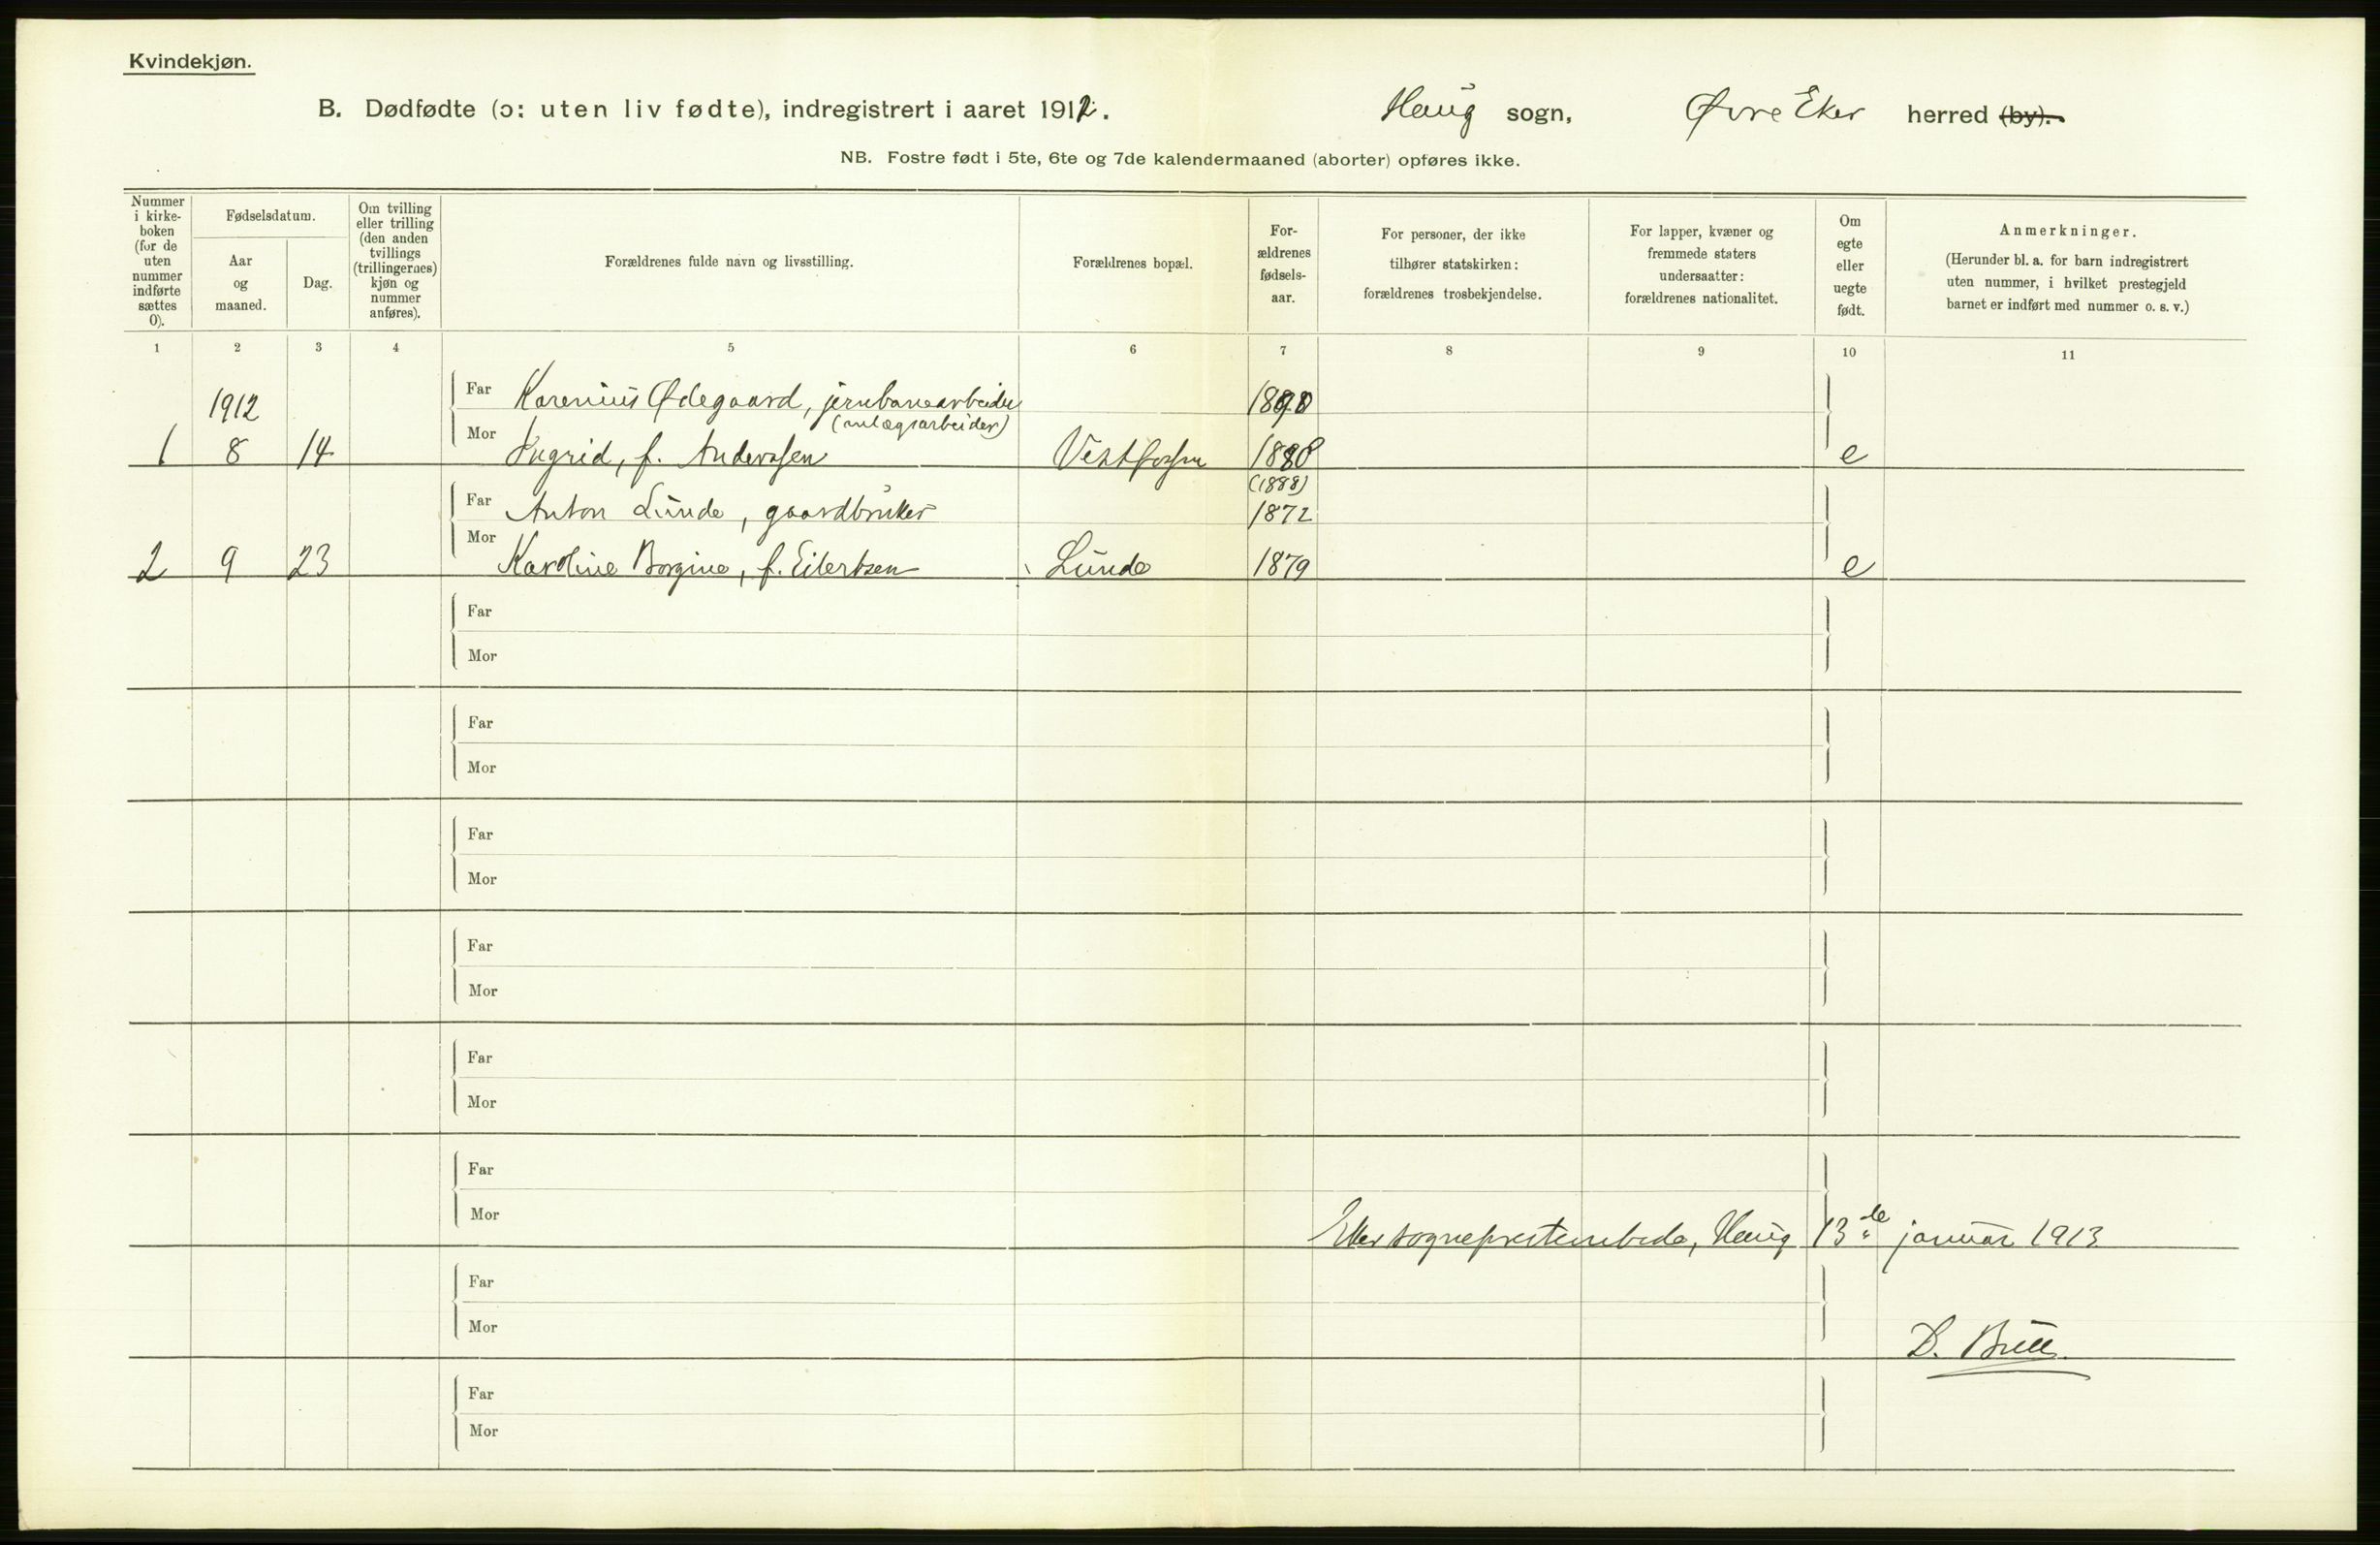 Kvindekjøn.
B. Dødfødte (ɔ: uten liv fødte), indregistrert i aaret 1912. Haug sogn, Øvre Eker herred (by).
NB. Fostre født i 5te, 6te og 7de kalendermaaned (aborter) opføres ikke.
Nummer i kirke-boken (for de uten nummer indførte sættes 0).
Fødselsdatum.
Aar og maaned.
Dag.
Om tvilling eller trilling (den anden tvillings (trillingernes) kjøn og nummer anføres).
Forældrenes fulde navn og livsstilling.
Forældrenes bopæl.
For-ældrenes fødsels-aar.
For personer, der ikke tilhører statskirken: forældrenes trosbekjendelse.
For lapper, kvæner og fremmede staters undersaatter: forældrenes nationalitet.
Om egte eller uegte født.
Anmerkninger.
(Herunder bl. a. for barn indregistrert uten nummer, i hvilket prestegjeld barnet er indført med nummer o. s. v.)
1 2 3 4 5 6 7 8 9 10 11
1912 Far Karenius Ødegaard, jernbanearbeider
(anlægsarbeider)
1 8 14 Mor Ingrid, f. Anderssen Vestfossen 1880 e
(1888)
Far Anton Lunde, gaardbruker 1872
2 9 23 Mor Karoline Borgine, f. Eilertsen Lunde 1879 e
Far
Mor
Far
Mor
Far
Mor
Far
Mor
Far
Mor
Far
Mor
Eker sogneprestembede, Haug 13de januar 1913
Far
Mor
D. Bull.
Far
Mor